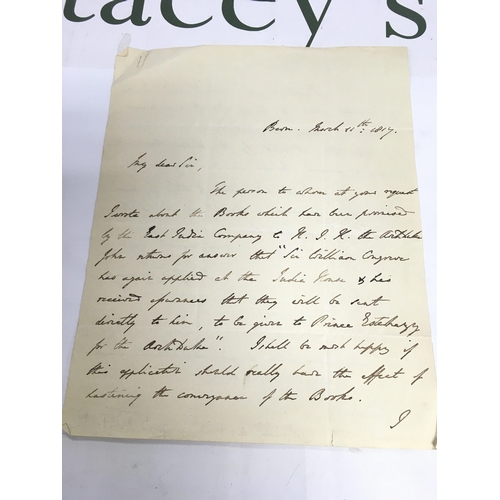 tacey's
Bern. March 11th. 1817.
My dear Sir,
The person to whom at your request
I wrote about the Books which have been promised
by the East India Company to H. I. H. the ArchDuke
John returns for answer that "Sir William Congreve
has again applied at the India House & has
received assurances that they will be sent
directly to him, to be given to Prince Esterhazy
for the ArchDuke". I shall be most happy if
this application should really have the effect of
hastening the conveyance of the Books.
I